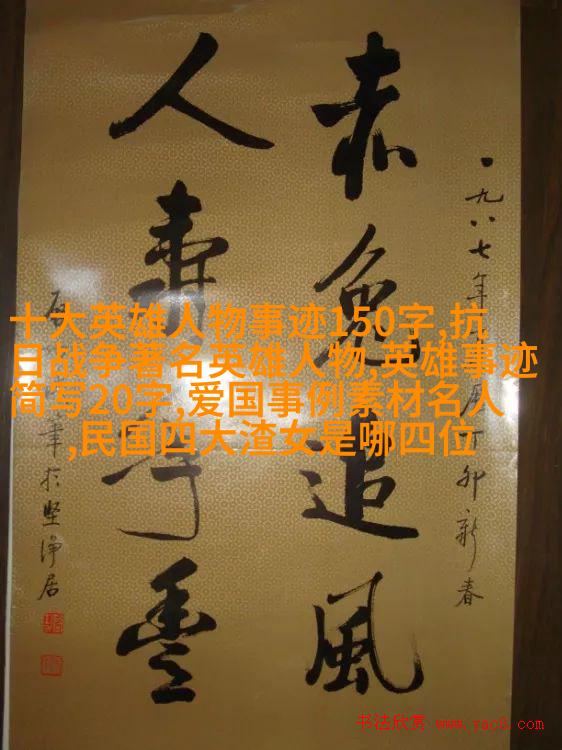 赤兔追風
人寿年豐
一九八七年
丁卯新春
筆於坚净居
十大英雄人物事迹150字,抗
日战争著名英雄人物,英雄事迹
简写20字,爱国事例素材名人
,民国四大渣女是哪四位
书法欣赏 www.yac8.com